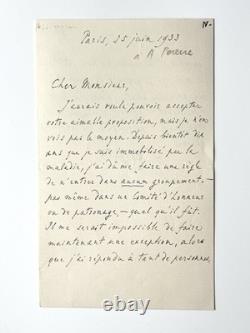 IV.
Paris, 25 juin 1933
à A Pereire
Cher Monsieur,
J'aurais voulu pouvoir accepter
votre aimable proposition, mais je n'en
vois pas le moyen. Depuis bientôt dix
ans que je suis immobilisé par la
maladie, j'ai dû me faire une règle
de n'entrer dans aucun groupement,
pas même dans un Comité d'honneur
ou de patronage — quel qu'il fût.
Il me serait impossible de faire
maintenant une exception, alors
que j'ai répondu à tant de personnes